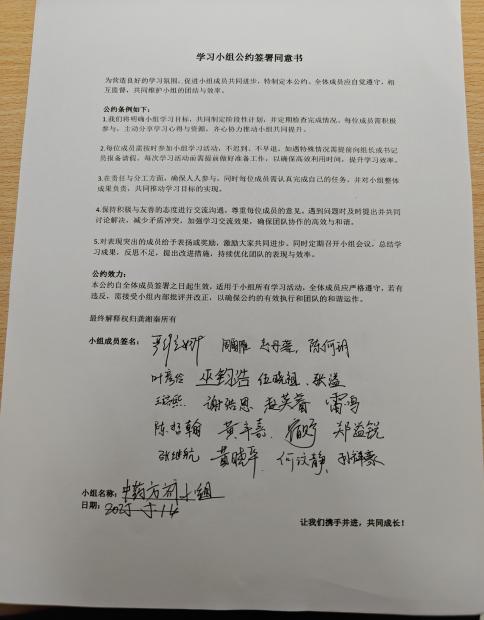 学习小组公约签署同意书
为营造良好的学习氛围，促进小组成员共同进步，特制定本公约。全体成员应自觉遵守，相
互监督，共同维护小组的团结与效率。
公约条例如下：
1.我们将明确小组学习目标，共同制定阶段性计划，并定期检查完成情况。每位成员需积极
参与，主动分享学习心得与资源，齐心协力推动小组共同提升。
2.每位成员需按时参加小组学习活动，不迟到、不早退。如遇特殊情况需提前向组长或书记
员报备请假，每次学习活动前需提前做好准备工作，以确保高效利用时间，提升学习效率。
3.在责任与分工方面，确保人人参与，同时每位成员需认真完成自己的任务，并对小组整体
成果负责，共同推动学习目标的实现。
4.保持积极与友善的态度进行交流沟通，尊重每位成员的意见。遇到问题时及时提出并共同
讨论解决，减少矛盾冲突，加强学习交流效果，确保团队协作的高效与和谐。
5.对表现突出的成员给予表扬或奖励，激励大家共同进步。同时定期召开小组会议，总结学
习成果，反思不足，提出改进措施，持续优化团队的表现与效率。
公约效力：
本公约自全体成员签署之日起生效，适用于小组所有学习活动，全体成员应严格遵守，若有
违反，需接受小组内部批评并改正，以确保公约的有效执行和团队的和谐运作。
最终解释权归龚湘秦所有
小组成员签名： 陈何明
叶彦伶 巫钧浩 伍晓祖 张溢
谢浩恩 赵芙蓉 雷鸣
陈哲翰 黄丰嘉 郑益锐
张继航 黄晓华 何汶静
小组名称：中药方剂小组
日期：2025-5-14
让我们携手并进，共同成长！